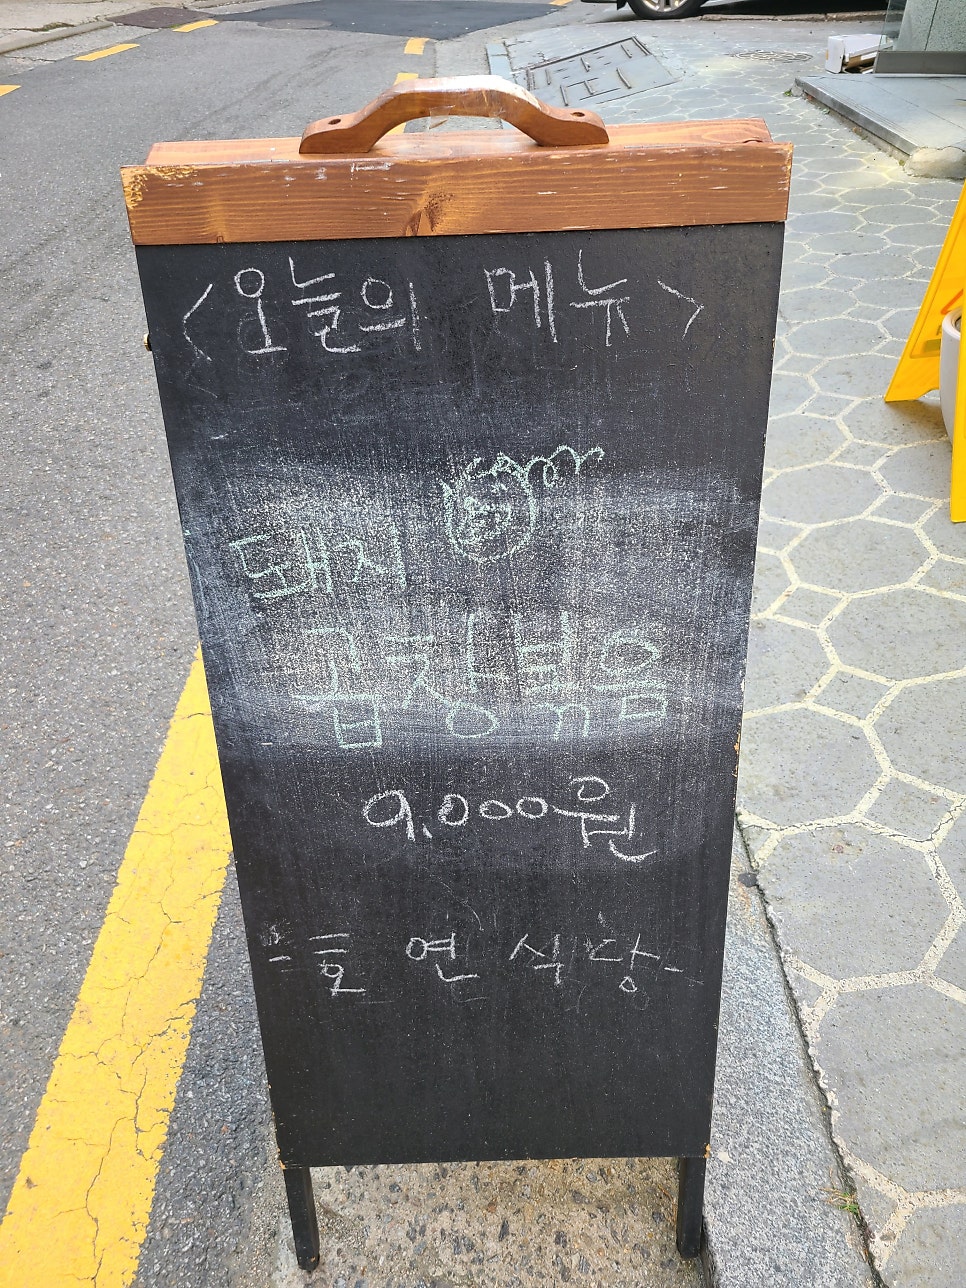 <오늘의 메뉴>
돼지
곱창볶음
9.000원
연 식당-